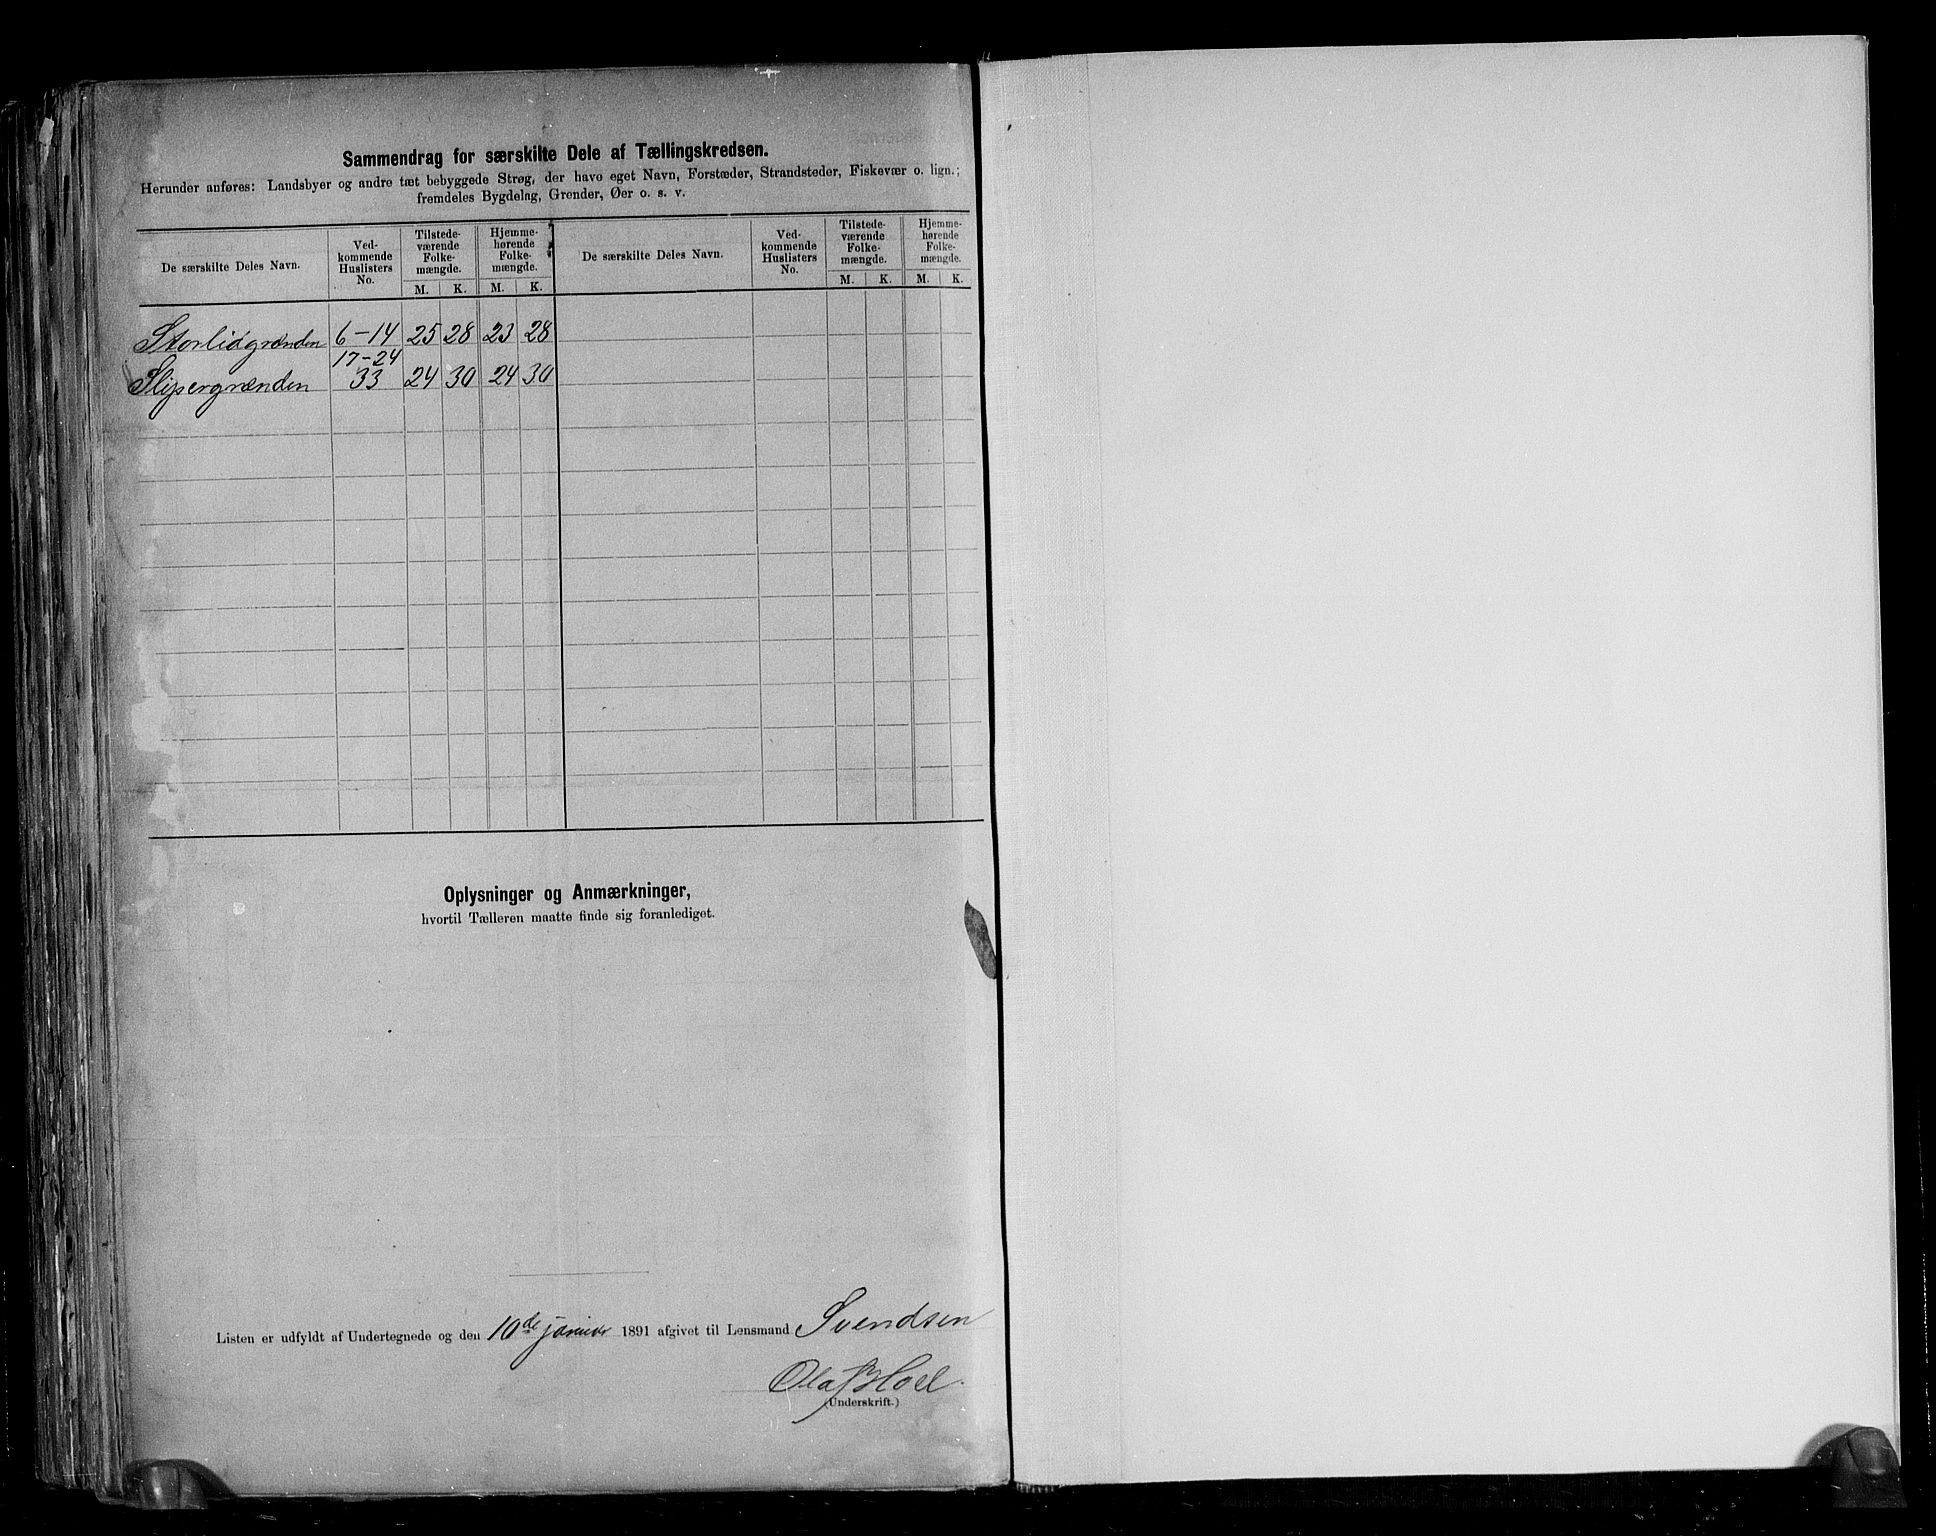 Sammendrag for særskilte Dele af Tællingskredsen.
Herunder anføres: Landsbyer og andre tæt bebyggede Strøg, der have eget Navn, Forstæder, Strandsteder, Fiskevær o. lign.;
fremdeles Bygdelag, Grender, Øer o. s. v.
De særskilte Deles Navn. Ved-kommende Huslisters No. Tilstede-værende Folke-mængde. Hjemme-hørende Folke-mængde. De særskilte Deles Navn. Ved-kommende Huslisters No. Tilstede-værende Folke-mængde. Hjemme-hørende Folke-mængde.
M. K. M. K. M. K. M. K.
Storlidgrænden 6-14 25 28 23 28
17-24
Slipergrænden 33 24 30 24 30
Oplysninger og Anmærkninger,
hvortil Tælleren maatte finde sig foranlediget.
Listen er udfyldt af Undertegnede og den 10de januar 1891 afgivet til Lensmand Svendsen
Olaf Hoel
(Underskrift.)